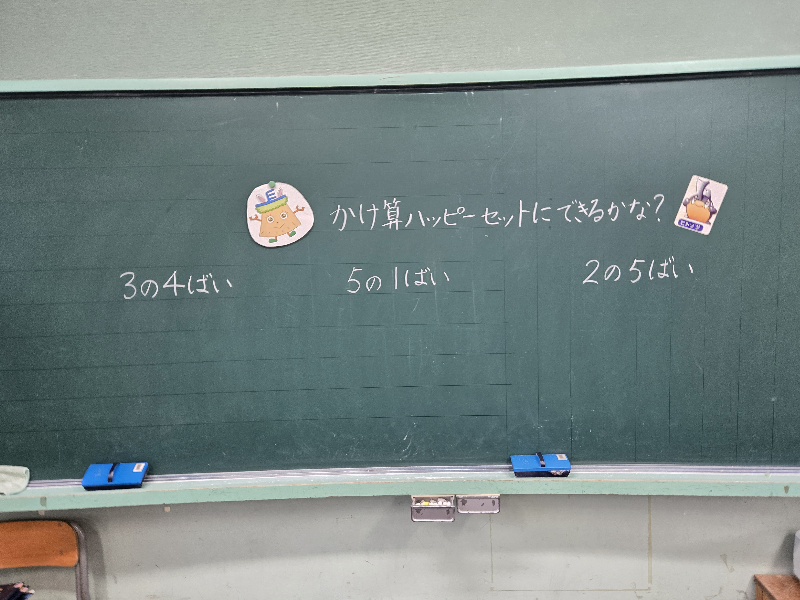 かけ算ハッピーセットにできるかな?
3の4ばい
5の1ばい
2の5ばい